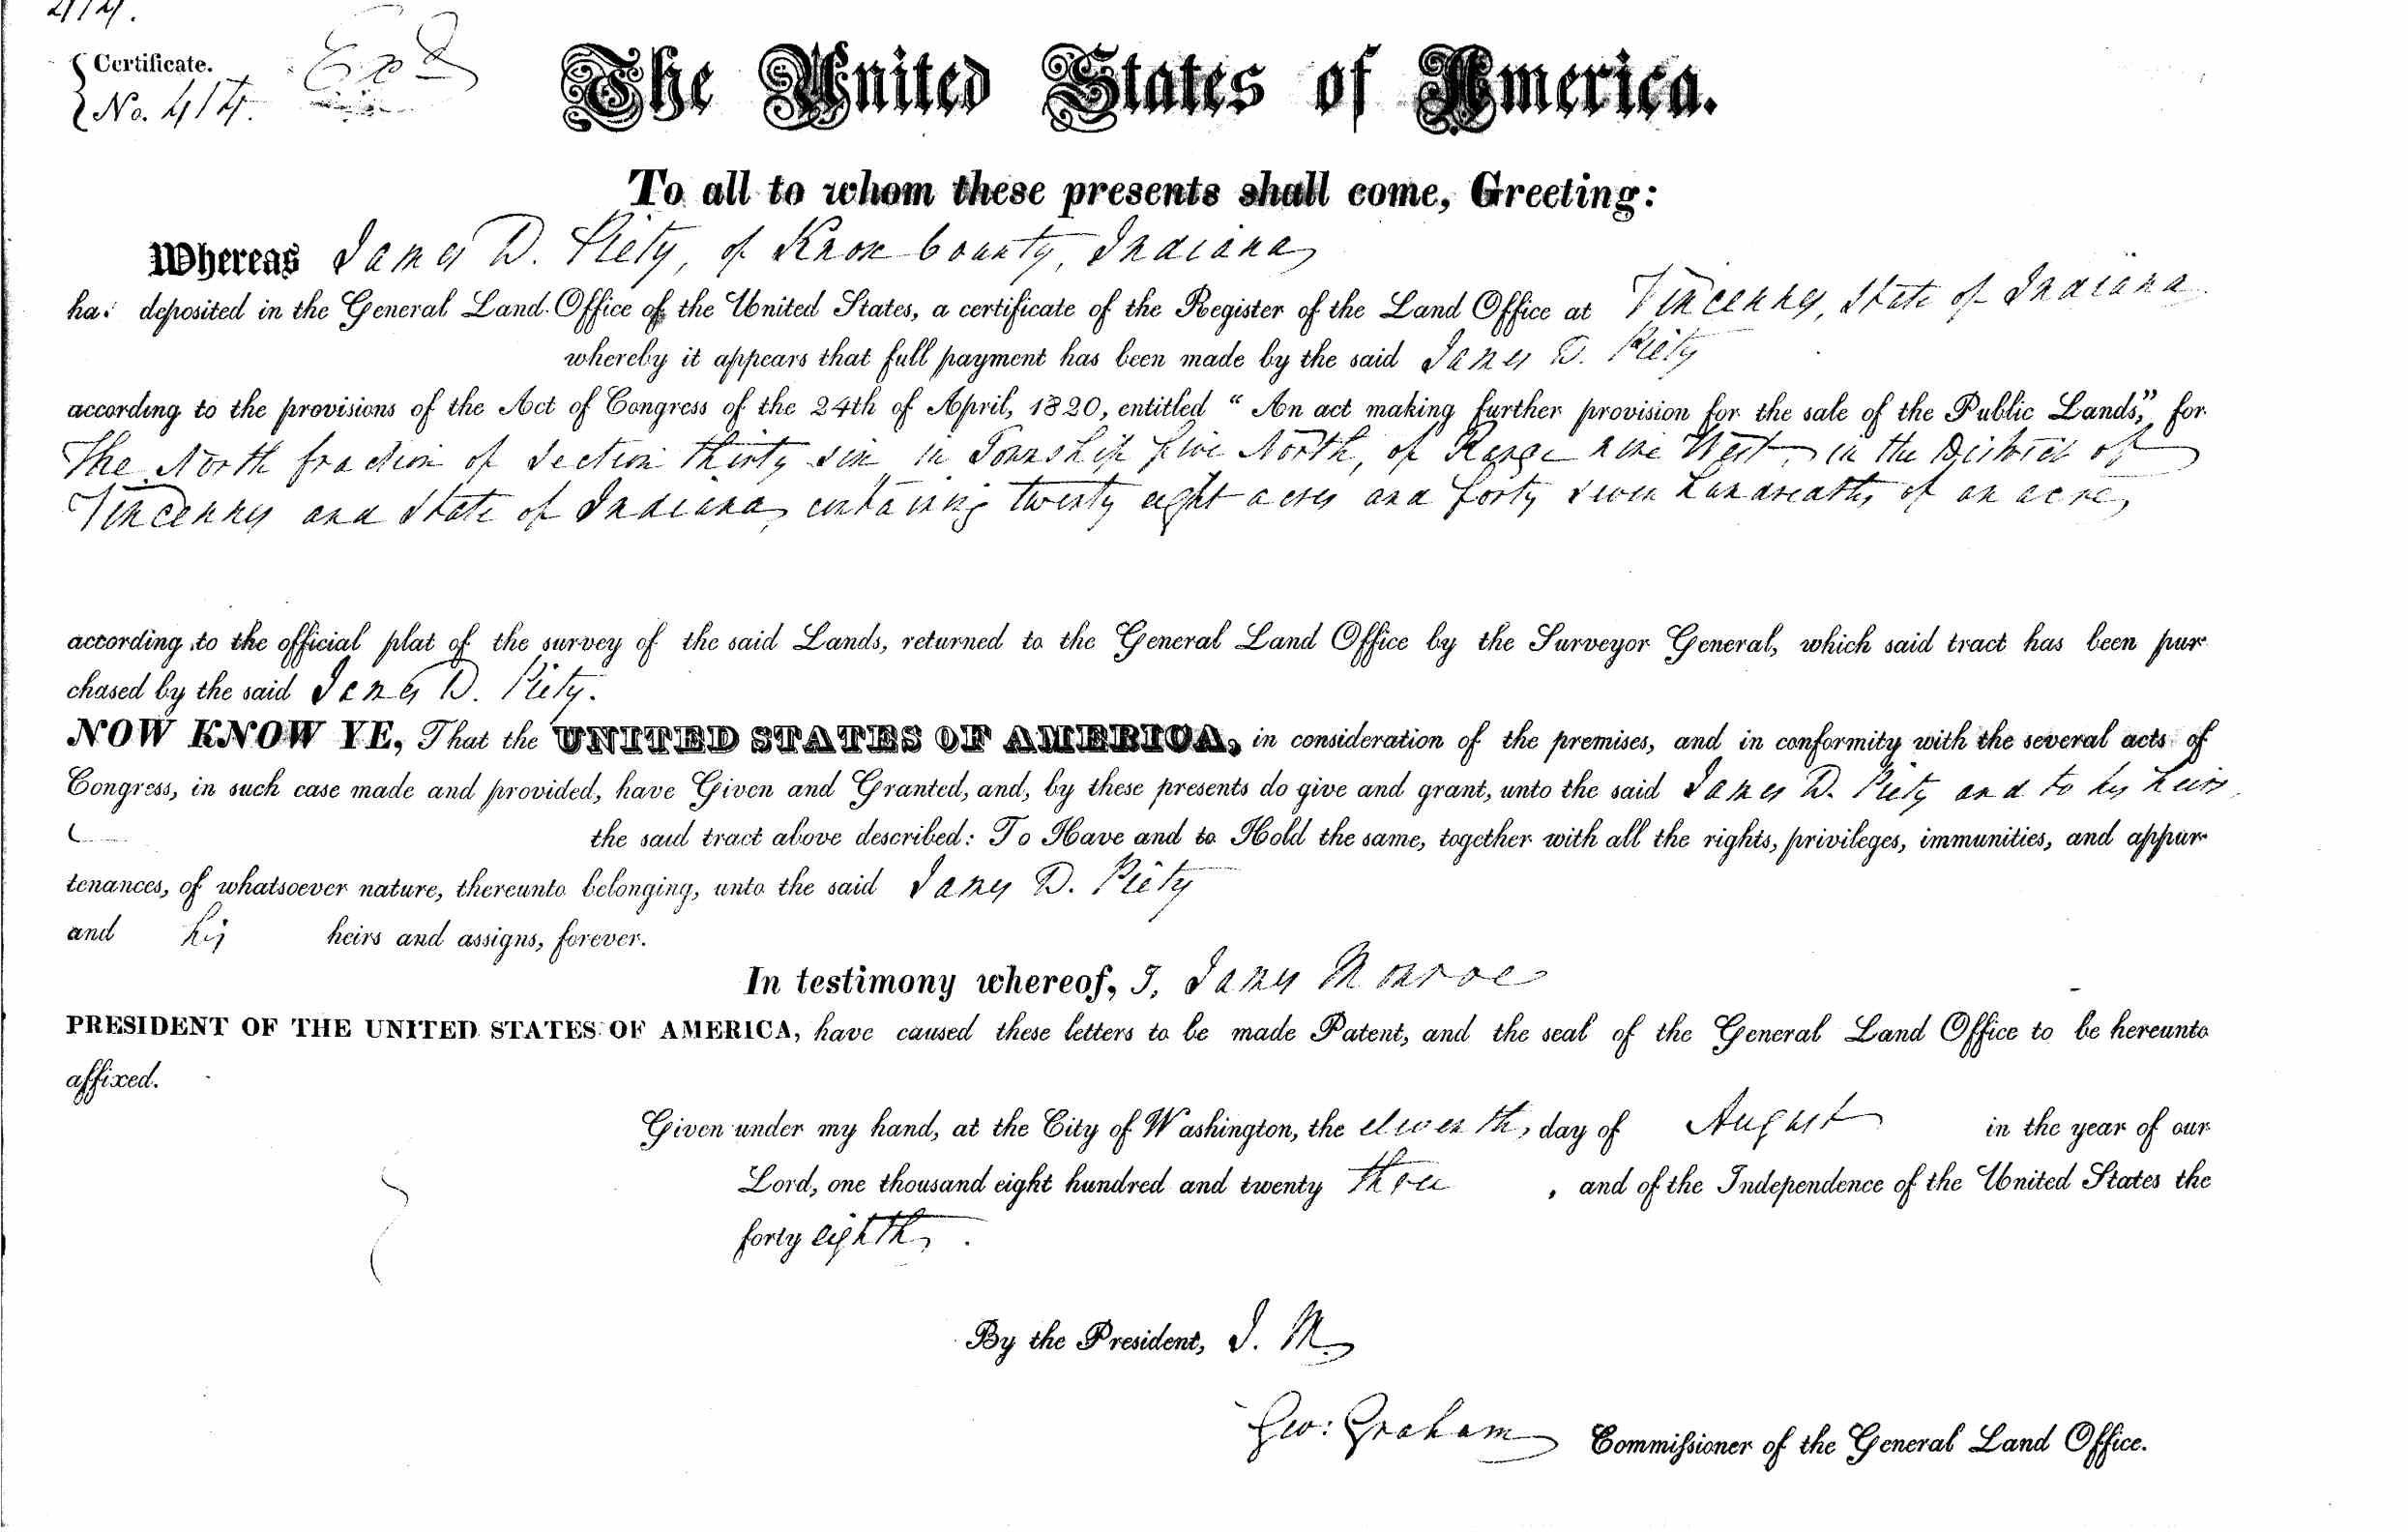 414.
Certificate.
No. 414.
Exd
The United States of America.
To all to whom these presents shall come, Greeting:
Whereas James D. Piety, of Knox County, Indiana,
has deposited in the General Land Office of the United States, a certificate of the Register of the Land Office at Vincennes, State of Indiana
whereby it appears that full payment has been made by the said James D. Piety
according to the provisions of the Act of Congress of the 24th of April, 1820, entitled “ An act making further provision for the sale of the Public Lands,” for
The North fraction of Section thirty six in Township five North, of Range nine West, in the District of
Vincennes and State of Indiana, containing twenty eight acres and forty seven hundredths of an acre,
according to the official plat of the survey of the said Lands, returned to the General Land Office by the Surveyor General, which said tract has been pur
chased by the said James D. Piety.
NOW KNOW YE, That the UNITED STATES OF AMERICA, in consideration of the premises, and in conformity with the several acts of
Congress, in such case made and provided, have Given and Granted, and, by these presents do give and grant, unto the said James D. Piety and to his heirs,
the said tract above described: To Have and to Hold the same, together with all the rights, privileges, immunities, and appur
tenances, of whatsoever nature, thereunto belonging, unto the said James D. Piety
and his heirs and assigns, forever.
In testimony whereof, I, James Monroe
PRESIDENT OF THE UNITED STATES OF AMERICA, have caused these letters to be made Patent, and the seal of the General Land Office to be hereunto
affixed.
Given under my hand, at the City of Washington, the eleventh, day of August in the year of our
Lord, one thousand eight hundred and twenty three , and of the Independence of the United States the
forty eighth, .
By the President, J. M.
Geo: Graham Commissioner of the General Land Office.